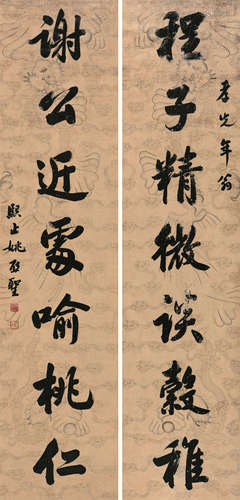 孝先年翁
程子精微談穀種
謝公近處喻桃仁
熙止姚啟聖